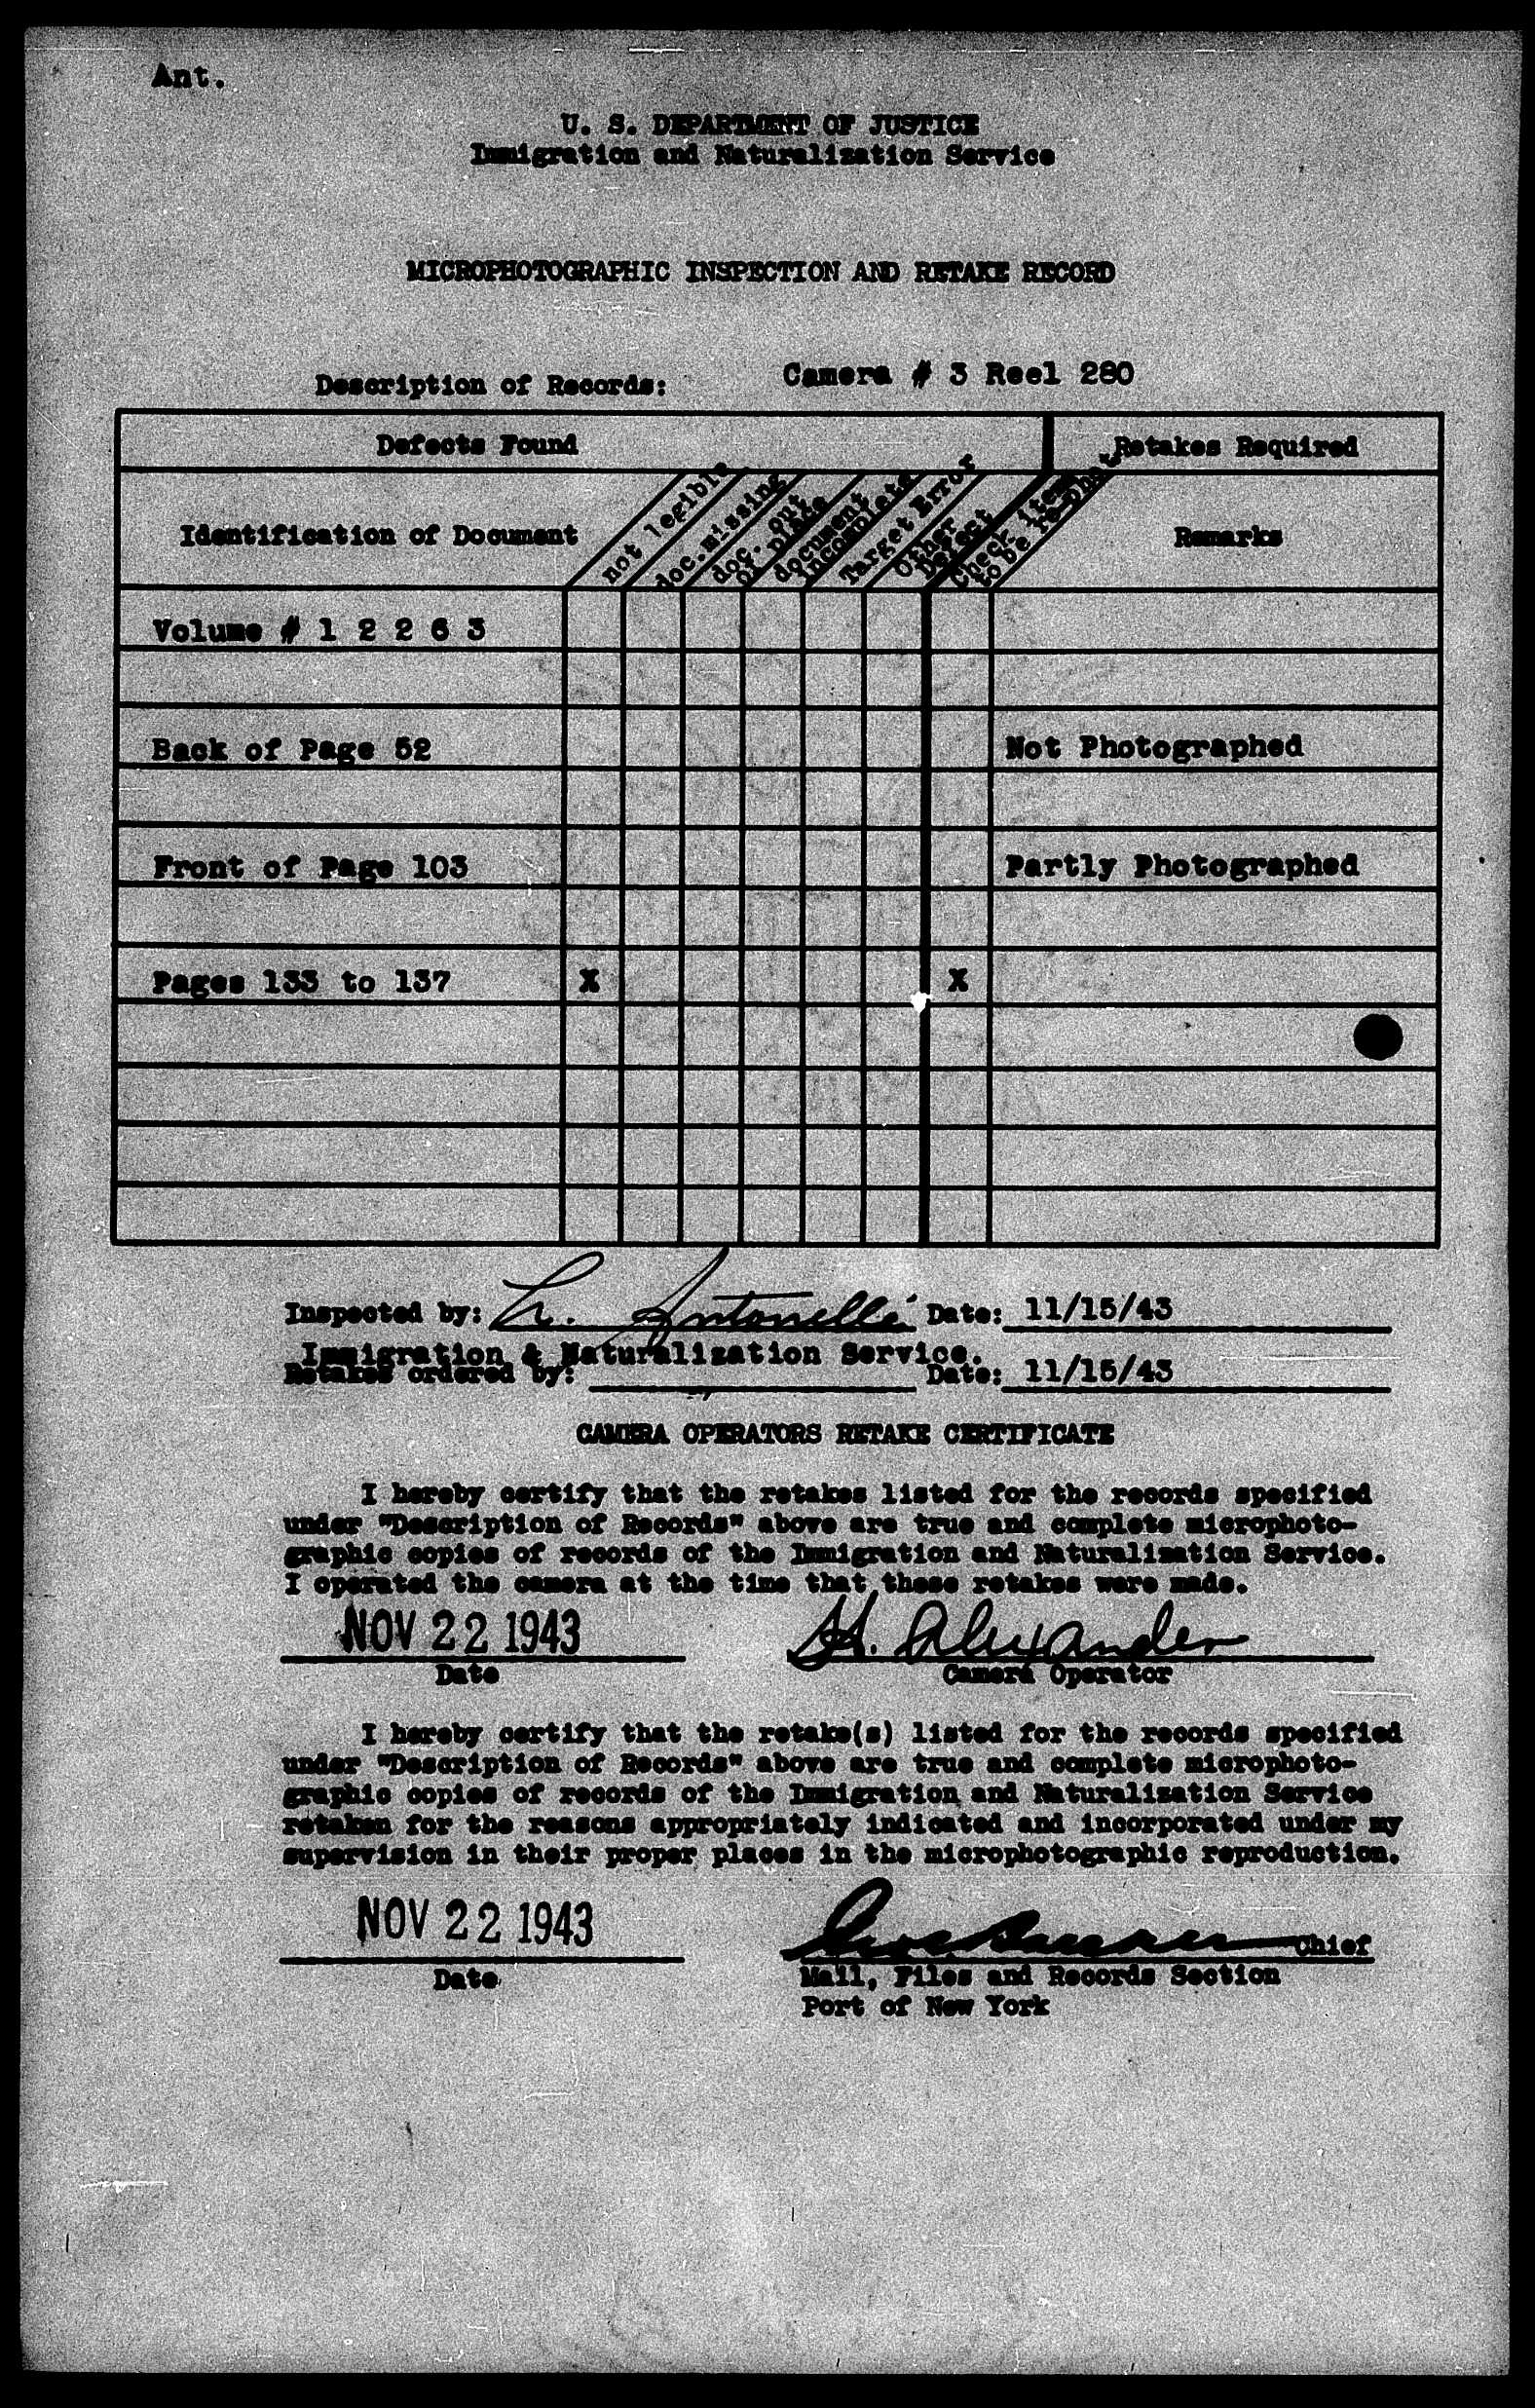 Ant.
U. S. DEPARTMENT OF JUSTICE
Immigration and Naturalization Service
MICROPHOTOGRAPHIC INSPECTION AND RETAKE RECORD
Description of Records: Camera # 3 Reel 280
Defects Found Retakes Required
Identification of Document not legible doc. missing doc. out of place document incomplete Target Error Other Defect Check item to be re-phot Remarks
Volume # 1 2 2 6 3
Back of Page 52 Not Photographed
Front of Page 103 Partly Photographed
Pages 133 to 137 X X
Inspected by: L. Antonelli Date: 11/15/43
Immigration & Naturalization Service.
Retakes ordered by: Date: 11/15/43
CAMERA OPERATORS RETAKE CERTIFICATE
I hereby certify that the retakes listed for the records specified
under "Description of Records" above are true and complete microphoto-
graphic copies of records of the Immigration and Naturalization Service.
I operated the camera at the time that these retakes were made.
NOV 22 1943 H. Alexander
Date Camera Operator
I hereby certify that the retake(s) listed for the records specified
under "Description of Records" above are true and complete microphoto-
graphic copies of records of the Immigration and Naturalization Service
retaken for the reasons appropriately indicated and incorporated under my
supervision in their proper places in the microphotographic reproduction.
NOV 22 1943 Chief
Date Mail, Files and Records Section
Port of New York